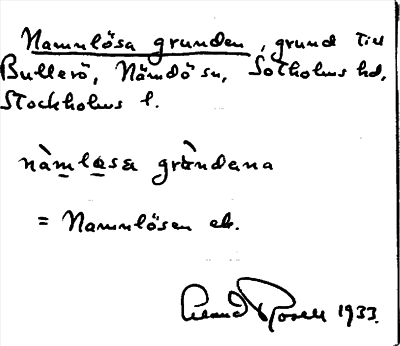 Namnlösa grunden, grund till
Bullerö, Nämdö sn, Sotholms hd,
Stockholms l.
nàmlasa gràndana
= Namnlösen ek.
Erland Rosell 1933.